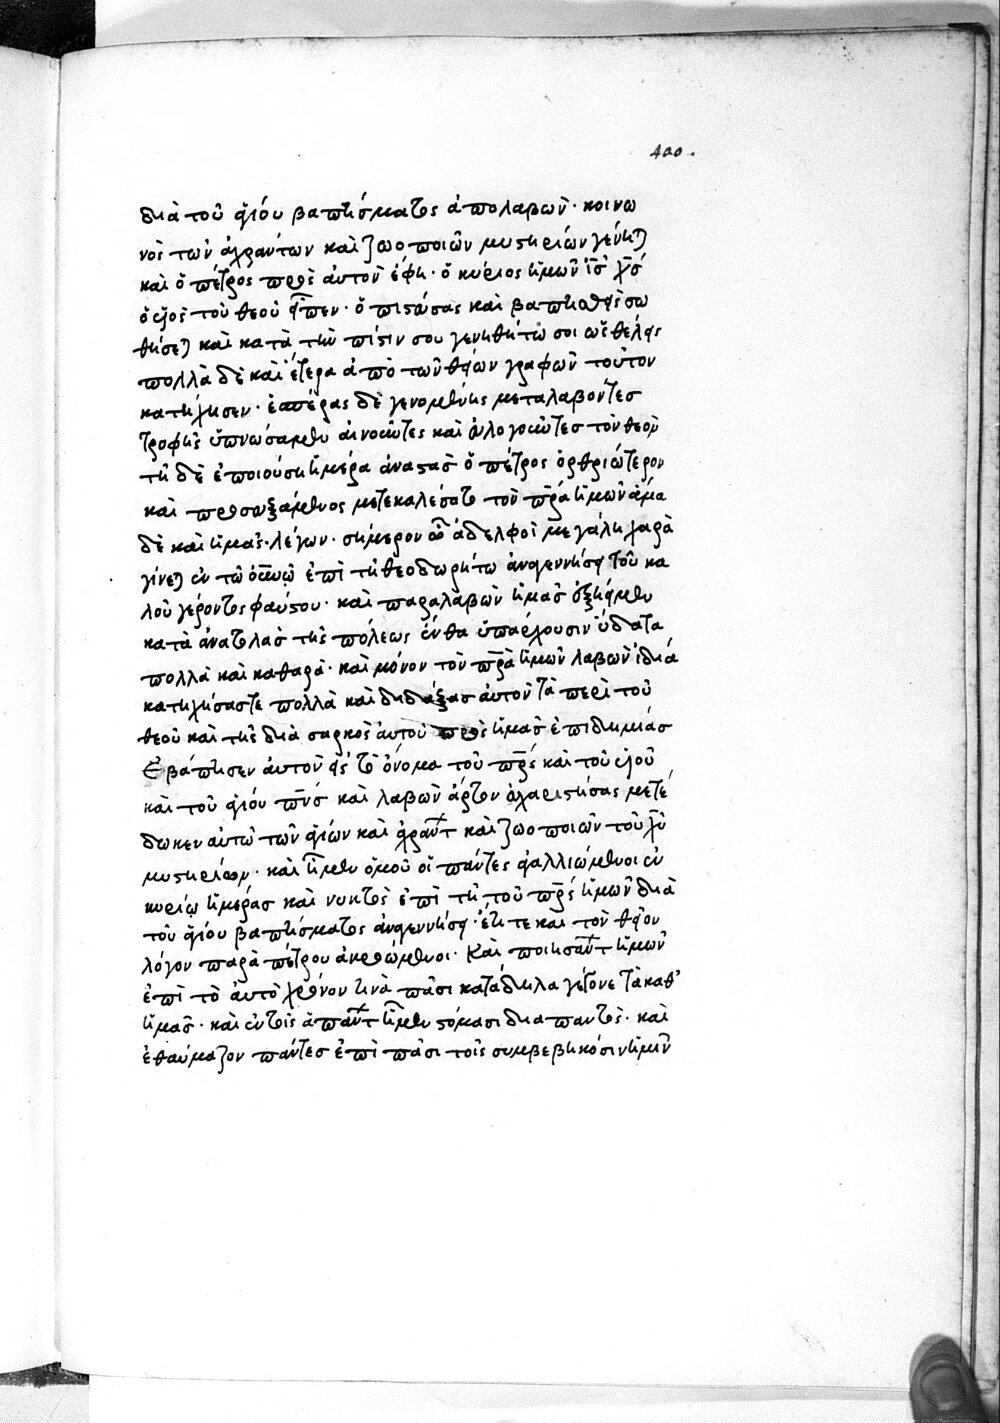 400.
διὰ τοῦ ἁγίου βαπτίσματος ἀπολαβὼν· κοινω
νὸς τῶν ἀχράντων καὶ ζωοποιῶν μυστηρίων γένηται
καὶ ὁ πέτρος πρὸς αὐτὸν ἔφη· ὁ κύριος ἡμῶν ἰς χς
ὁ υἱὸς τοῦ θεοῦ εἶπεν· ὁ πιστεύσας καὶ βαπτισθεὶς σω
θήσεται καὶ κατὰ τὴν πίστιν σου γενηθήτω σοι ὡς θέλεις
πολλὰ δὲ καὶ ἕτερα ἀπὸ τῶν θείων γραφῶν τοῦτον
κατήχησεν· ἑσπέρας δὲ γενομένης μεταλαβόντες
τροφῆς ὑπνώσαμεν αἰνοῦντες καὶ εὐλογοῦντες τὸν θεὸν
τῇ δὲ ἐποιούσῃ ἡμέρα ἀναστὰς ὁ πέτρος ὀρθριώτερον
καὶ προσευξάμενος μετεκαλέσατο τὸν πρα ἡμῶν ἅμα
δὲ καὶ ἡμᾶς· λέγων· σήμερον ὦ ἀδελφοὶ μεγάλη χαρὰ
γίνεται ἐν τῶ οὐνῶ ἐπὶ τῇ θεοδωρήτω ἀναγεννήσει τοῦ κα
λοῦ γέροντος φαύστου· καὶ παραλαβὼν ἡμᾶς ἐξήειμεν
κατὰ ἀνατολὰς τῆς πόλεως ἔνθα ὑπάρχουσιν ὕδατα
πολλὰ καὶ καθαρὰ· καὶ μόνον τὸν πρα ἡμῶν λαβὼν ἰδία
κατηχήσας τε πολλὰ καὶ διδάξας αὐτὸν τὰ περὶ τοῦ
θεοῦ καὶ τῆς διὰ σαρκὸς αὐτοῦ πρὸς ἡμᾶς ἐπιδημίας
Ἐβάπτισεν αὐτὸν εἰς τὸ ὄνομα τοῦ πρς καὶ τοῦ υἱοῦ
καὶ τοῦ ἁγίου πνς καὶ λαβὼν ἄρτον εὐχαριστήσας μετέ
δωκεν αὐτῶ τῶν ἁγίων καὶ ἀχράντ καὶ ζωοποιῶν τοῦ χυ
μυστηρίων· καὶ ἦμεν ὁμοῦ οἱ πάντες ἀγαλλιώμενοι ἐν
κυρίῳ ἡμέρας καὶ νυκτὸς ἐπὶ τῇ τοῦ πρς ἡμῶν διὰ
τοῦ ἁγίου βαπτίσματος ἀναγεννήσει· ἔτι τε καὶ τὸν θεῖον
λόγον παρὰ πέτρου ἀκροώμενοι· Καὶ ποιησάντ ἡμῶν
ἐπὶ τὸ αὐτὸ χρόνον τινὰ πᾶσι κατάδηλα γέγονε τὰ καθ'
ἡμᾶς· καὶ ἐν τοῖς ἁπάντ ἦμεν στόμασι διαπαντὸς· καὶ
ἐθαύμαζον πάντες ἐπὶ πᾶσι τοῖς συμβεβηκόσιν ἡμῖν